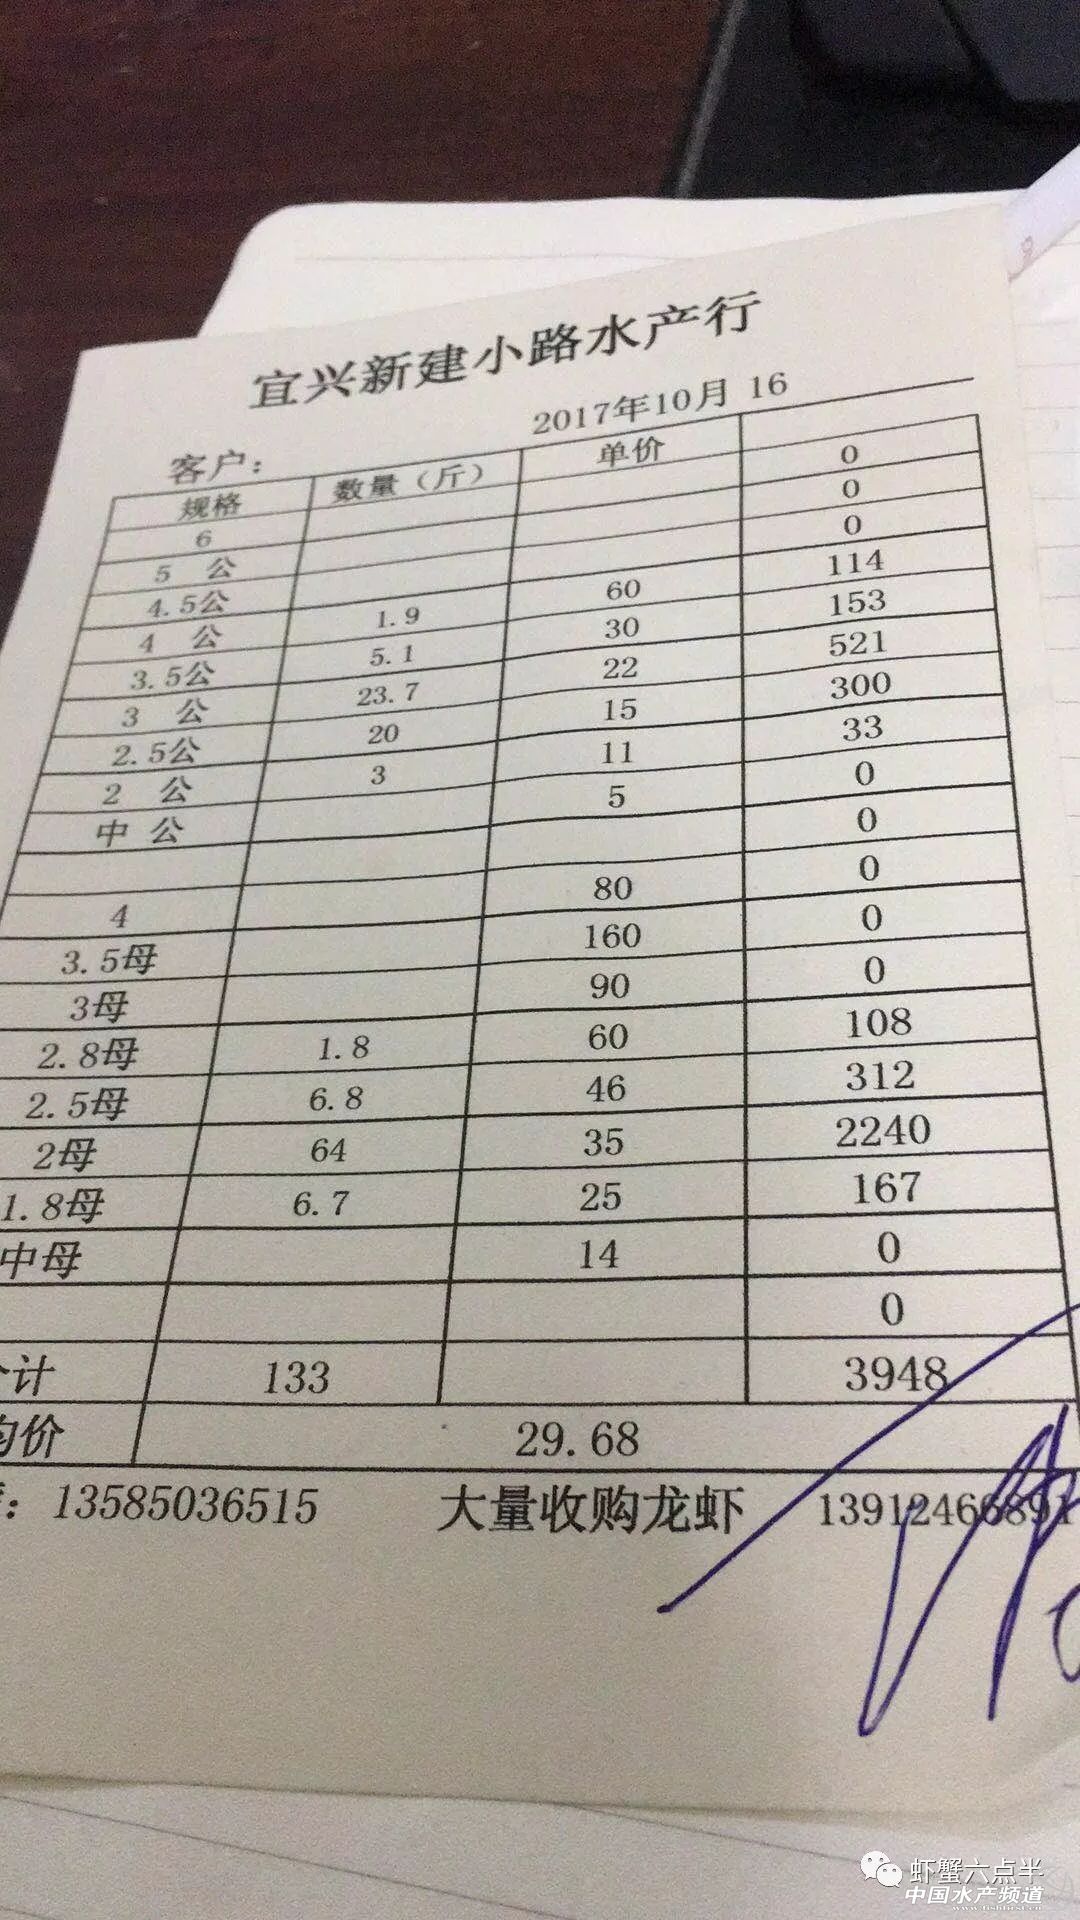 宜兴新建小路水产行
客户： 2017年10月 16
规格 数量（斤） 单价
6 0
5 公 0
4.5公 0
4 公 1.9 60 114
3.5公 5.1 30 153
3 公 23.7 22 521
2.5公 20 15 300
2 公 3 11 33
中 公 5 0
0
4 80 0
3.5母 160 0
3母 90 0
2.8母 1.8 60 108
2.5母 6.8 46 312
2母 64 35 2240
1.8母 6.7 25 167
中母 14 0
0
合计 133 3948
均价 29.68
：13585036515 大量收购龙虾 13912466891
虾蟹六点半
中国水产频道